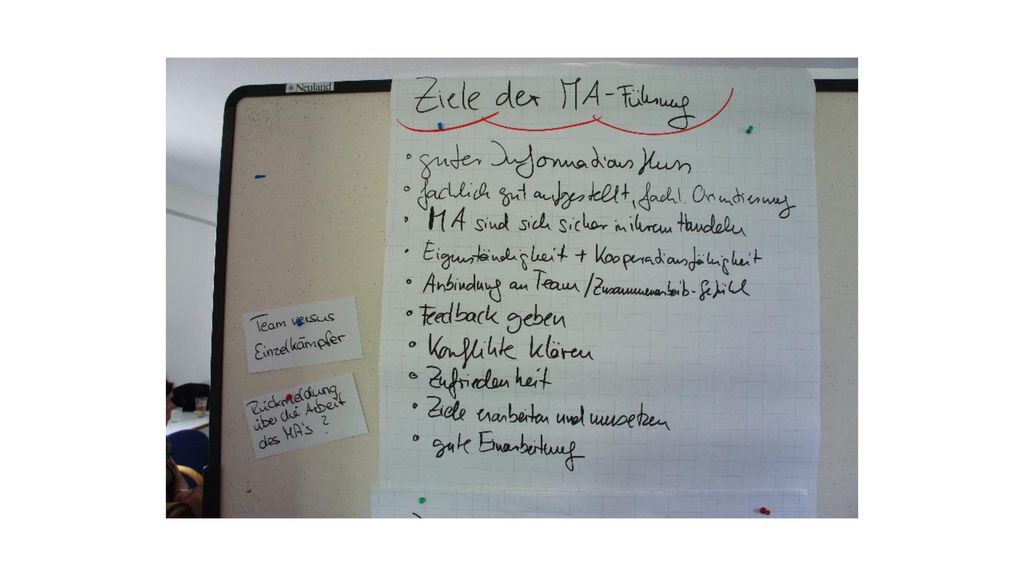 Neuland
Ziele der MA-Führung
• guter Informationsfluss
• fachlich gut aufgestellt, fachl. Orientierung
• MA sind sich sicher in ihrem Handeln
• Eigenständigkeit + Kooperationsfähigkeit
• Anbindung an Team / Zusammenarbeits-Gefühl
• Feedback geben
• Konflikte klären
• Zufriedenheit
• Ziele erarbeiten und umsetzen
• gute Einarbeitung
Team versus
Einzelkämpfer
Rückmeldung
über die Arbeit
des MA's?